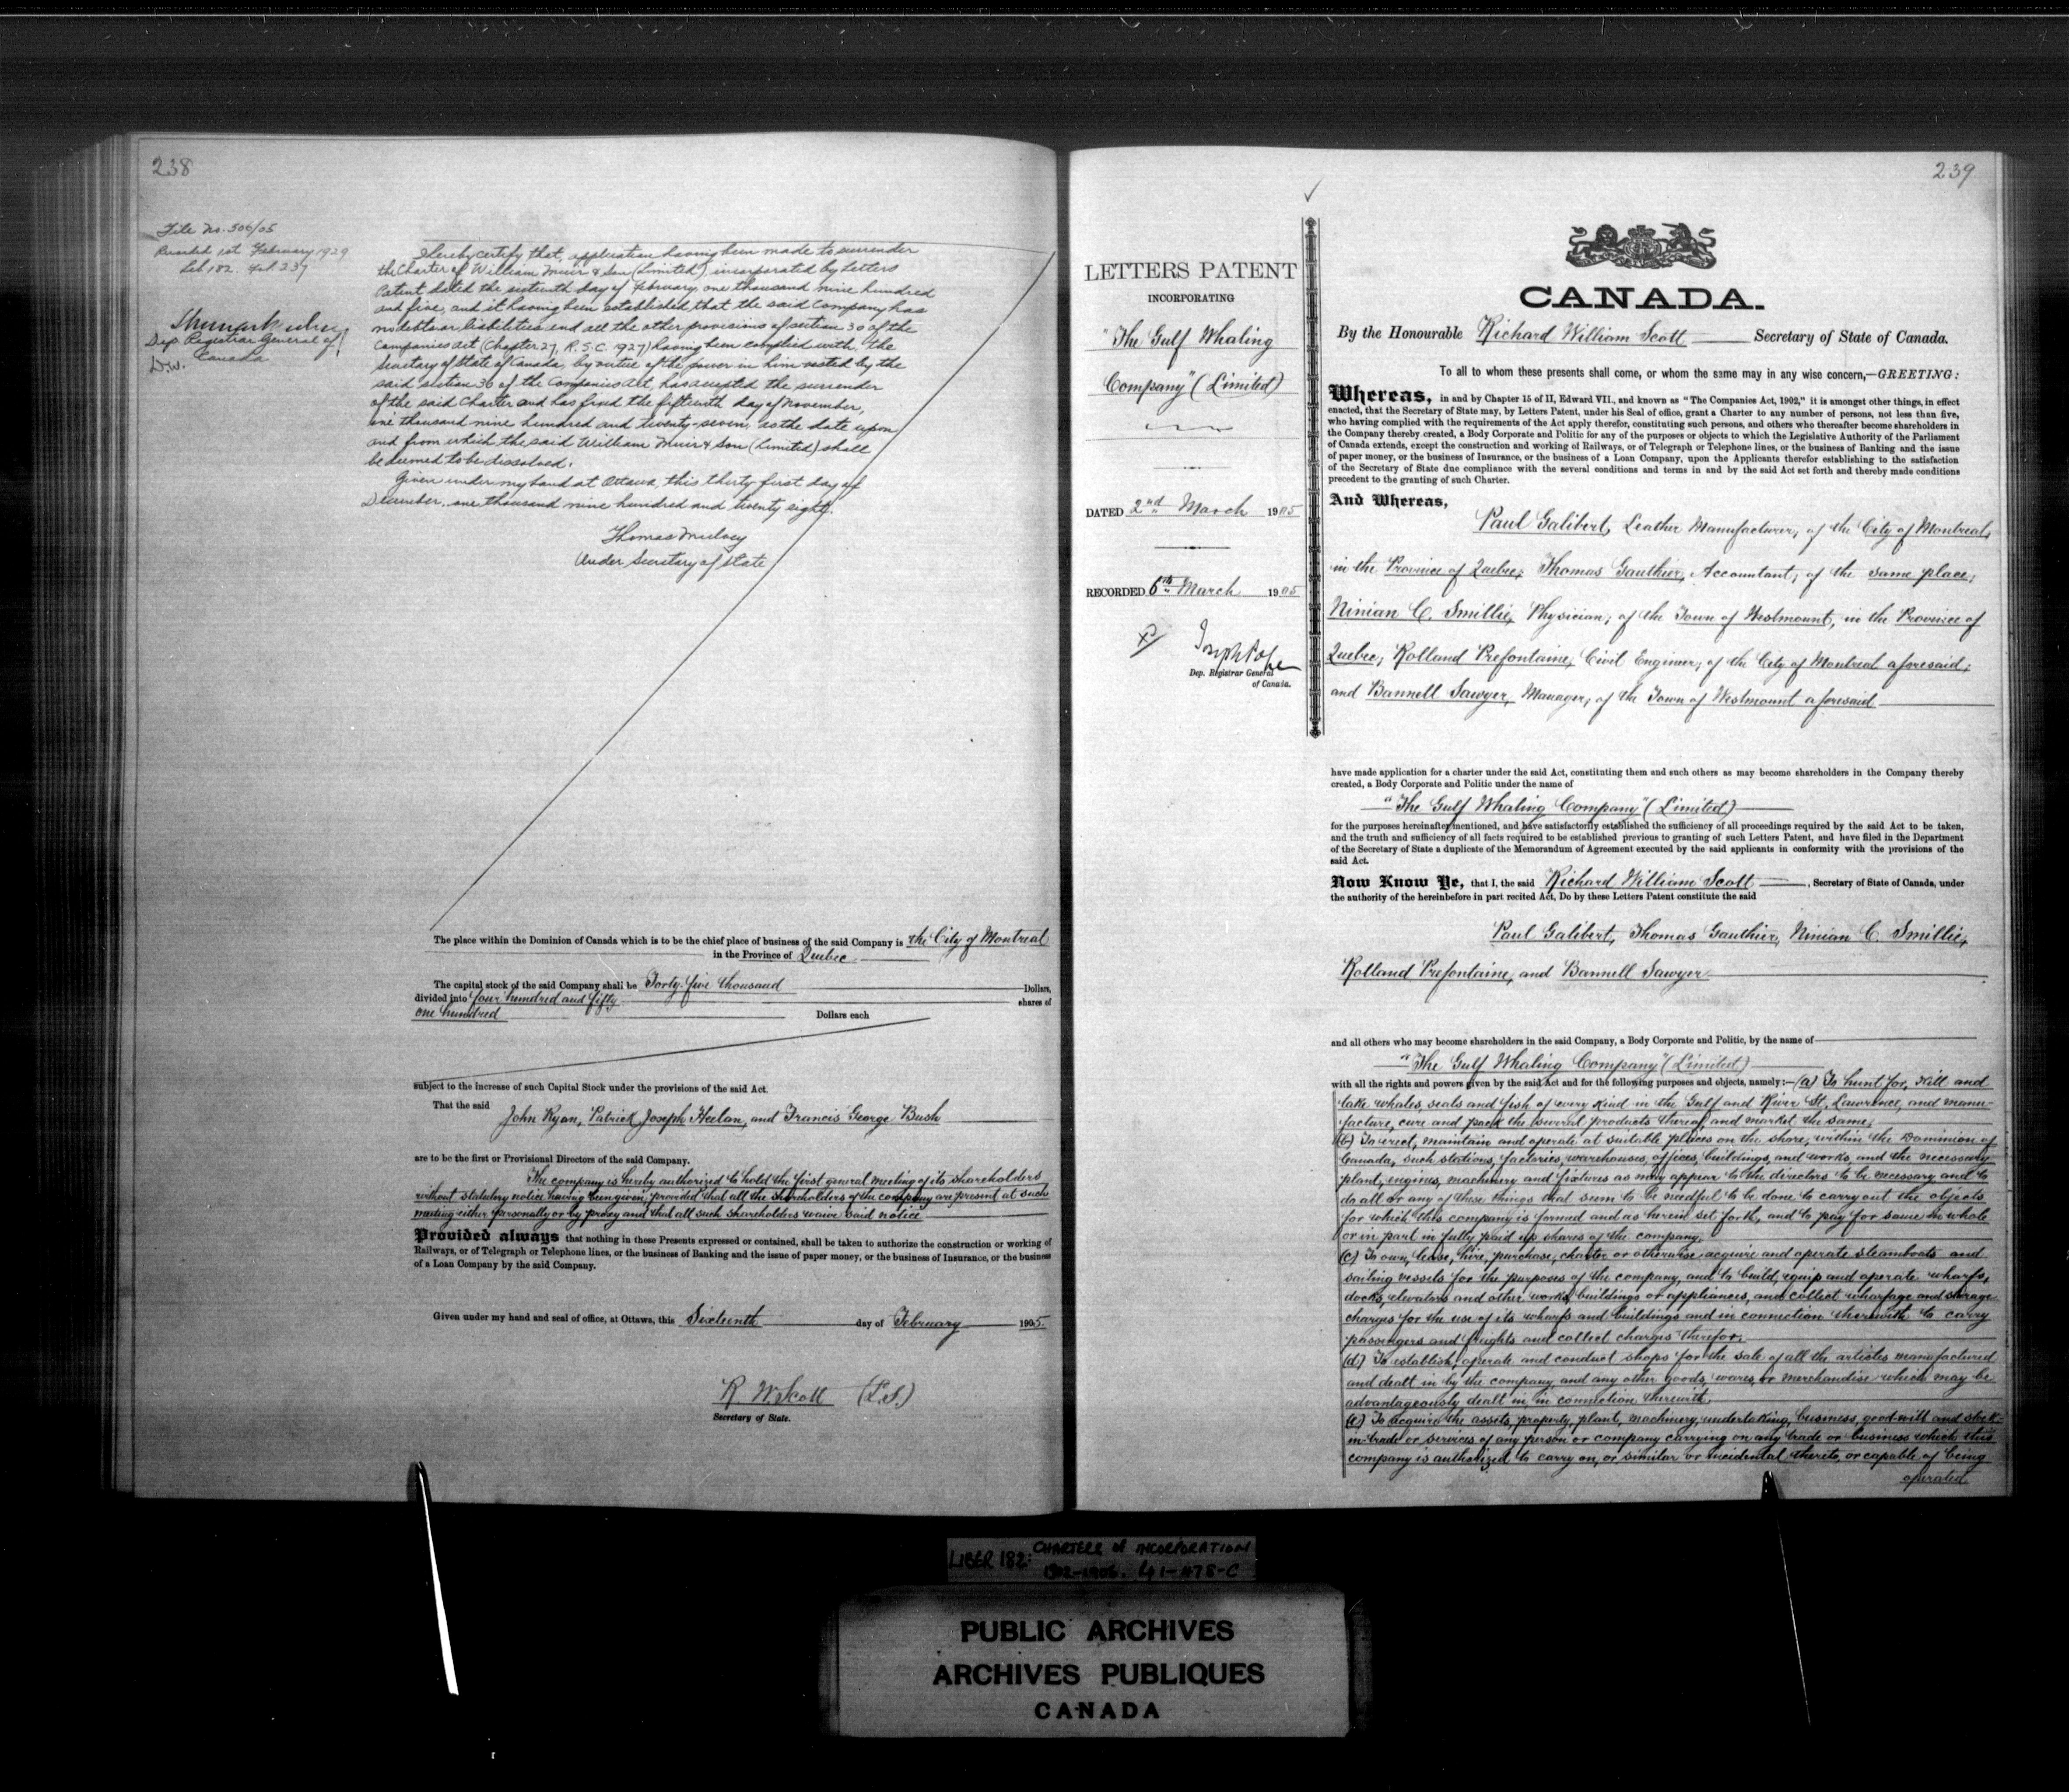 238
File No. 506/05
Recorded 1st February 1929
Lib 182. Fol. 237
Dep. Registrar General of
Canada
D.W.
I hereby certify that, application having been made to surrender
the Charter of William Muir & Son (Limited) incorporated by Letters
Patent dated the sixteenth day of February, one thousand nine hundred
and five, and it having been established that the said Company has
no debts or liabilities and all the other provisions of section 30 of the
Companies Act (Chapter 27, R.S.C. 1927) having been complied with, the
Secretary of State of Canada, by virtue of the power in him vested by the
said section 30 of the Companies Act, has accepted the surrender
of the said Charter and has fixed the fifteenth day of November,
one thousand nine hundred and twenty-seven, as the date upon
and from which the said William Muir & Son (Limited) shall
be deemed to be dissolved.
Given under my hand at Ottawa, this thirty first day of
December, one thousand nine hundred and twenty eight.
Thomas Mulvey
Under Secretary of State
The place within the Dominion of Canada which is to be the chief place of business of the said Company is the City of Montreal
in the Province of Quebec
The capital stock of the said Company shall be Forty-five thousand Dollars,
divided into four hundred and fifty shares of
one hundred Dollars each
subject to the increase of such Capital Stock under the provisions of the said Act.
That the said
John Ryan, Patrick Joseph Heelan, and Francis George Bush
are to be the first or Provisional Directors of the said Company.
The company is hereby authorized to hold the first general meeting of its shareholders
without statutory notice having been given, provided that all the shareholders of the company are present at such
meeting either personally or by proxy and that all such shareholders waive said notice
Provided always that nothing in these Presents expressed or contained, shall be taken to authorize the construction or working of
Railways, or of Telegraph or Telephone lines, or the business of Banking and the issue of paper money, or the business of Insurance, or the business
of a Loan Company by the said Company.
Given under my hand and seal of office, at Ottawa, this Sixteenth day of February 1905.
R. W. Scott (L.S.)
Secretary of State.
239
LETTERS PATENT
INCORPORATING
"The Gulf Whaling
Company" (Limited)
DATED 2nd March 1905
RECORDED 6th March 1905
Joseph Pope
Dep. Registrar General
of Canada.
CANADA.
By the Honourable Richard William Scott Secretary of State of Canada.
To all to whom these presents shall come, or whom the same may in any wise concern,—GREETING:
Whereas, in and by Chapter 15 of II, Edward VII., and known as "The Companies Act, 1902," it is amongst other things, in effect
enacted, that the Secretary of State may, by Letters Patent, under his Seal of office, grant a Charter to any number of persons, not less than five,
who having complied with the requirements of the Act apply therefor, constituting such persons, and others who thereafter become shareholders in
the Company thereby created, a Body Corporate and Politic for any of the purposes or objects to which the Legislative Authority of the Parliament
of Canada extends, except the construction and working of Railways, or of Telegraph or Telephone lines, or the business of Banking and the issue
of paper money, or the business of Insurance, or the business of a Loan Company, upon the Applicants therefor establishing to the satisfaction
of the Secretary of State due compliance with the several conditions and terms in and by the said Act set forth and thereby made conditions
precedent to the granting of such Charter.
And Whereas,
Paul Galibert, Leather Manufacturer, of the City of Montreal,
in the Province of Quebec; Thomas Gauthier, Accountant, of the same place;
Ninian C. Smillie, Physician, of the Town of Westmount, in the Province of
Quebec; Rolland Prefontaine, Civil Engineer, of the City of Montreal aforesaid;
and Bannell Sawyer, Manager, of the Town of Westmount aforesaid
have made application for a charter under the said Act, constituting them and such others as may become shareholders in the Company thereby
created, a Body Corporate and Politic under the name of
"The Gulf Whaling Company" (Limited)
for the purposes hereinafter mentioned, and have satisfactorily established the sufficiency of all proceedings required by the said Act to be taken,
and the truth and sufficiency of all facts required to be established previous to granting of such Letters Patent, and have filed in the Department
of the Secretary of State a duplicate of the Memorandum of Agreement executed by the said applicants in conformity with the provisions of the
said Act.
Now Know Ye, that I, the said Richard William Scott, Secretary of State of Canada, under
the authority of the hereinbefore in part recited Act, Do by these Letters Patent constitute the said
Paul Galibert, Thomas Gauthier, Ninian C. Smillie,
Rolland Prefontaine, and Bannell Sawyer
and all others who may become shareholders in the said Company, a Body Corporate and Politic, by the name of
"The Gulf Whaling Company" (Limited)
with all the rights and powers given by the said Act and for the following purposes and objects, namely:—(a) To hunt for, kill and
take whales, seals and fish of every kind in the Gulf and River St. Lawrence, and manu-
facture, cure and pack the several products thereof and market the same.
(b) To erect, maintain and operate at suitable places on the shore, within the Dominion of
Canada, such stations, factories, warehouses, offices, buildings, and works, and the necessary
plant, engines, machinery and fixtures as may appear to the directors to be necessary and to
do all or any of these things that seem to be needful to be done to carry out the objects
for which this company is formed and as herein set forth, and to pay for same in whole
or in part in fully paid up shares of the company.
(c) To own, lease, hire, purchase, charter or otherwise acquire and operate steamboats and
sailing vessels for the purposes of the company, and to build, equip and operate wharfs,
docks, elevators and other works, buildings or appliances, and collect wharfage and storage
charges for the use of its wharfs and buildings and in connection therewith to carry
passengers and freights and collect charges therefor.
(d) To establish, operate and conduct shops for the sale of all the articles manufactured
and dealt in by the company and any other goods, wares, or merchandise which may be
advantageously dealt in, in connection therewith.
(e) To acquire the assets, property, plant, machinery, undertaking, business, good-will and stock-
in-trade or services of any person or company carrying on any trade or business which this
company is authorized to carry on, or similar or incidental thereto, or capable of being
operated
LIBER 182: CHARTERS of INCORPORATION
1902-1906. 1-478-C
PUBLIC ARCHIVES
ARCHIVES PUBLIQUES
CANADA